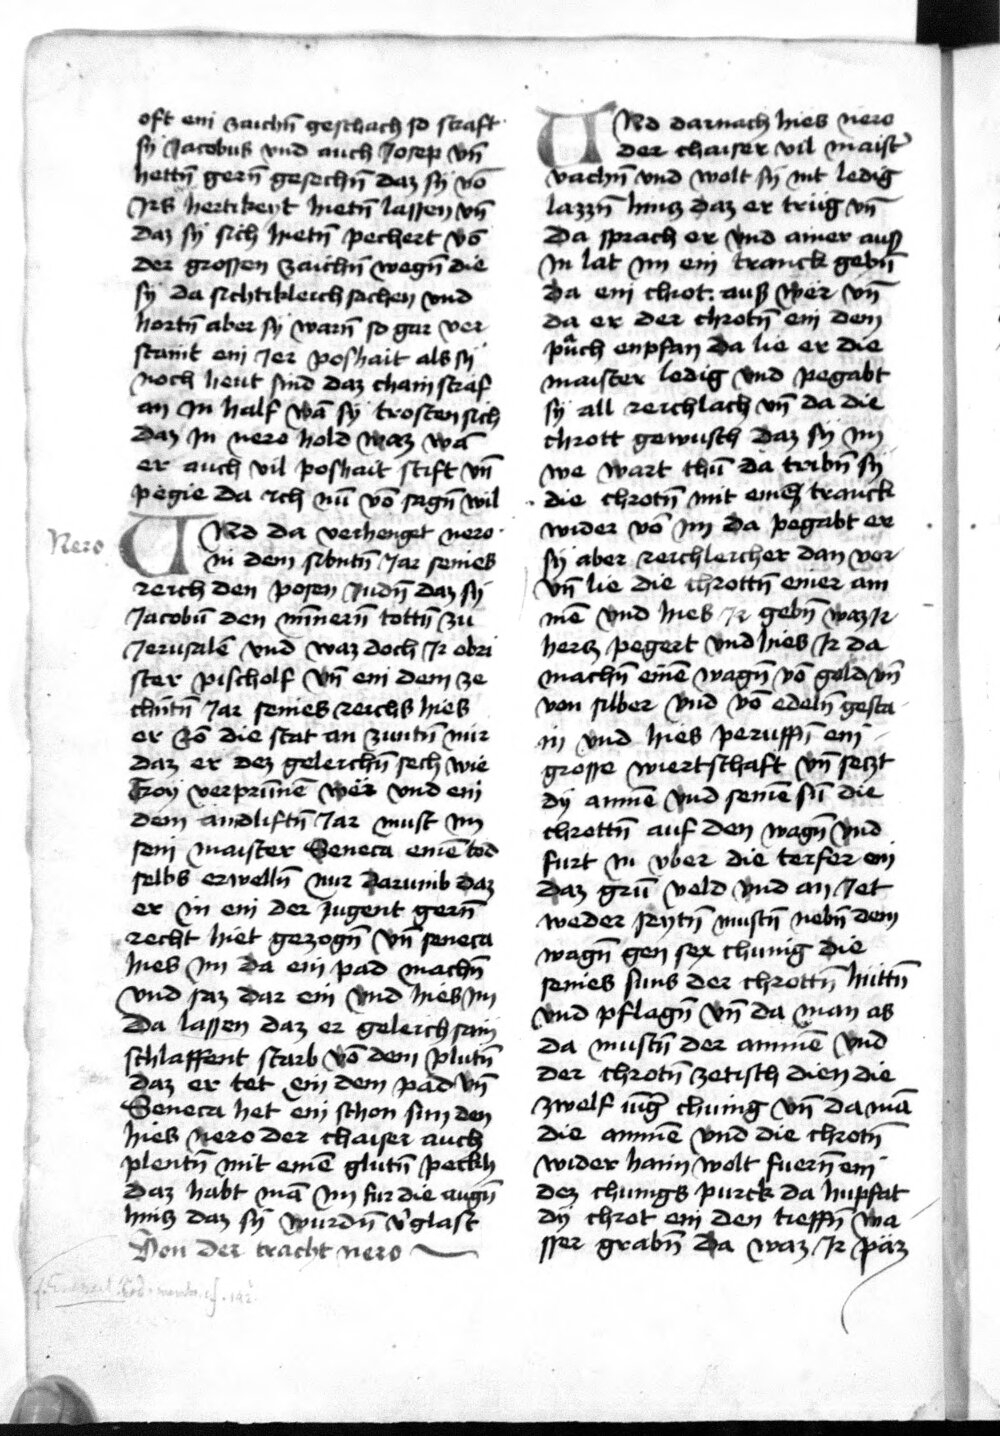 oft ein zaichñ geschach so straft
sy Jacobus vnd auch Josep vñ
hettñ gerñ gesechñ daz sy võ
Irs hertikeyt hietñ lassen vñ
daz sy sich hietñ pechert võ
der grossen zaichñ wegñ die
sy da sichtikleich sachen vnd
hortñ aber sy warñ so gar ver
staint ein Jer poshait als sy
noch heut sind daz chain straf
an In half wã sy trosten sich
daz In nero hold waz wã
er auch vil poshait stift vñ
pegie da ich nu võ sagñ wil
VNd da verhenget nero
Nero
in dem sibntñ Jar seines
reich den posen Judñ daz sy
Jacobũ den mĩnerñ tottñ zu
Jerusalẽ vnd waz doch Ir obri
ster pischolf vñ ein dem ze
chñtñ Jar seines reichs hies
er Rõ die stat an zuntñ nur
daz er dez geleichñ sech wie
Troy verprũnẽ wer vnd ein
dem aindliftñ Jar must im
sein maister Seneca einẽ tod
selbs erwellñ nur darumb daz
er in ein der Jugent gerñ
recht hiet gezogñ vñ seneca
hies im da ein pad machñ
vnd saz dar ein vnd hies im
da lassen daz er geleich sam
schlaffent starb võ dem plutñ
daz er tet ein dem pad vñ
Seneca het ein schon sun den
hies nero der chaiser auch
plentñ mit einẽ glutñ peckh
daz habt mã im fur die augñ
hincz daz sy wurdñ v'glast
Von der tracht nero
VNd darnach hies nero
der chaiser vil maister
vachñ vnd wolt sy nit ledig
lazzñ hincz daz er trug vñ
da sprach er vnd ainer aus
In lat im ein tranck gebñ
da ein chrot aus wer vñ
da er der chrotñ ein dem
pauch enpfan da lie er die
maister ledig vnd pegabt
sy all reichlach vñ da die
chrott gewusch daz sy im
we wart thũ da tribñ sy
die chrotñ mit einem tranck
wider võ im da pegabt er
sy aber reichleicher dan vor
vñ lie die chrottñ einer am
mẽ vnd hies Ir gebñ waz Ir
hercz pegert vnd hies Ir da
machñ einẽ wagñ võ gold vñ
von silber vnd võ edelñ gesta
in vnd hies peruffñ ein
grosse wiertschaft vñ seczt
dy ammẽ vnd seinẽ sũ die
chrottñ auf den wagñ vnd
furt in vber die teifer ein
daz grũ veld vnd an Jet
weder seytñ mustñ nebñ dem
wagñ gen sex chunig die
seines suns der chrottñ hüttñ
vnd pflagñ vñ da man as
da mustñ der ammẽ vnd
der chrotñ zetisch dien die
zwelf iũg chunig vñ da mã
die ammẽ vnd die chrotñ
wider haim wolt fuerñ ein
dez chunigs purck da hupfat
dy chrot ein den tieffñ wa
sser grabñ da waz Ir paz